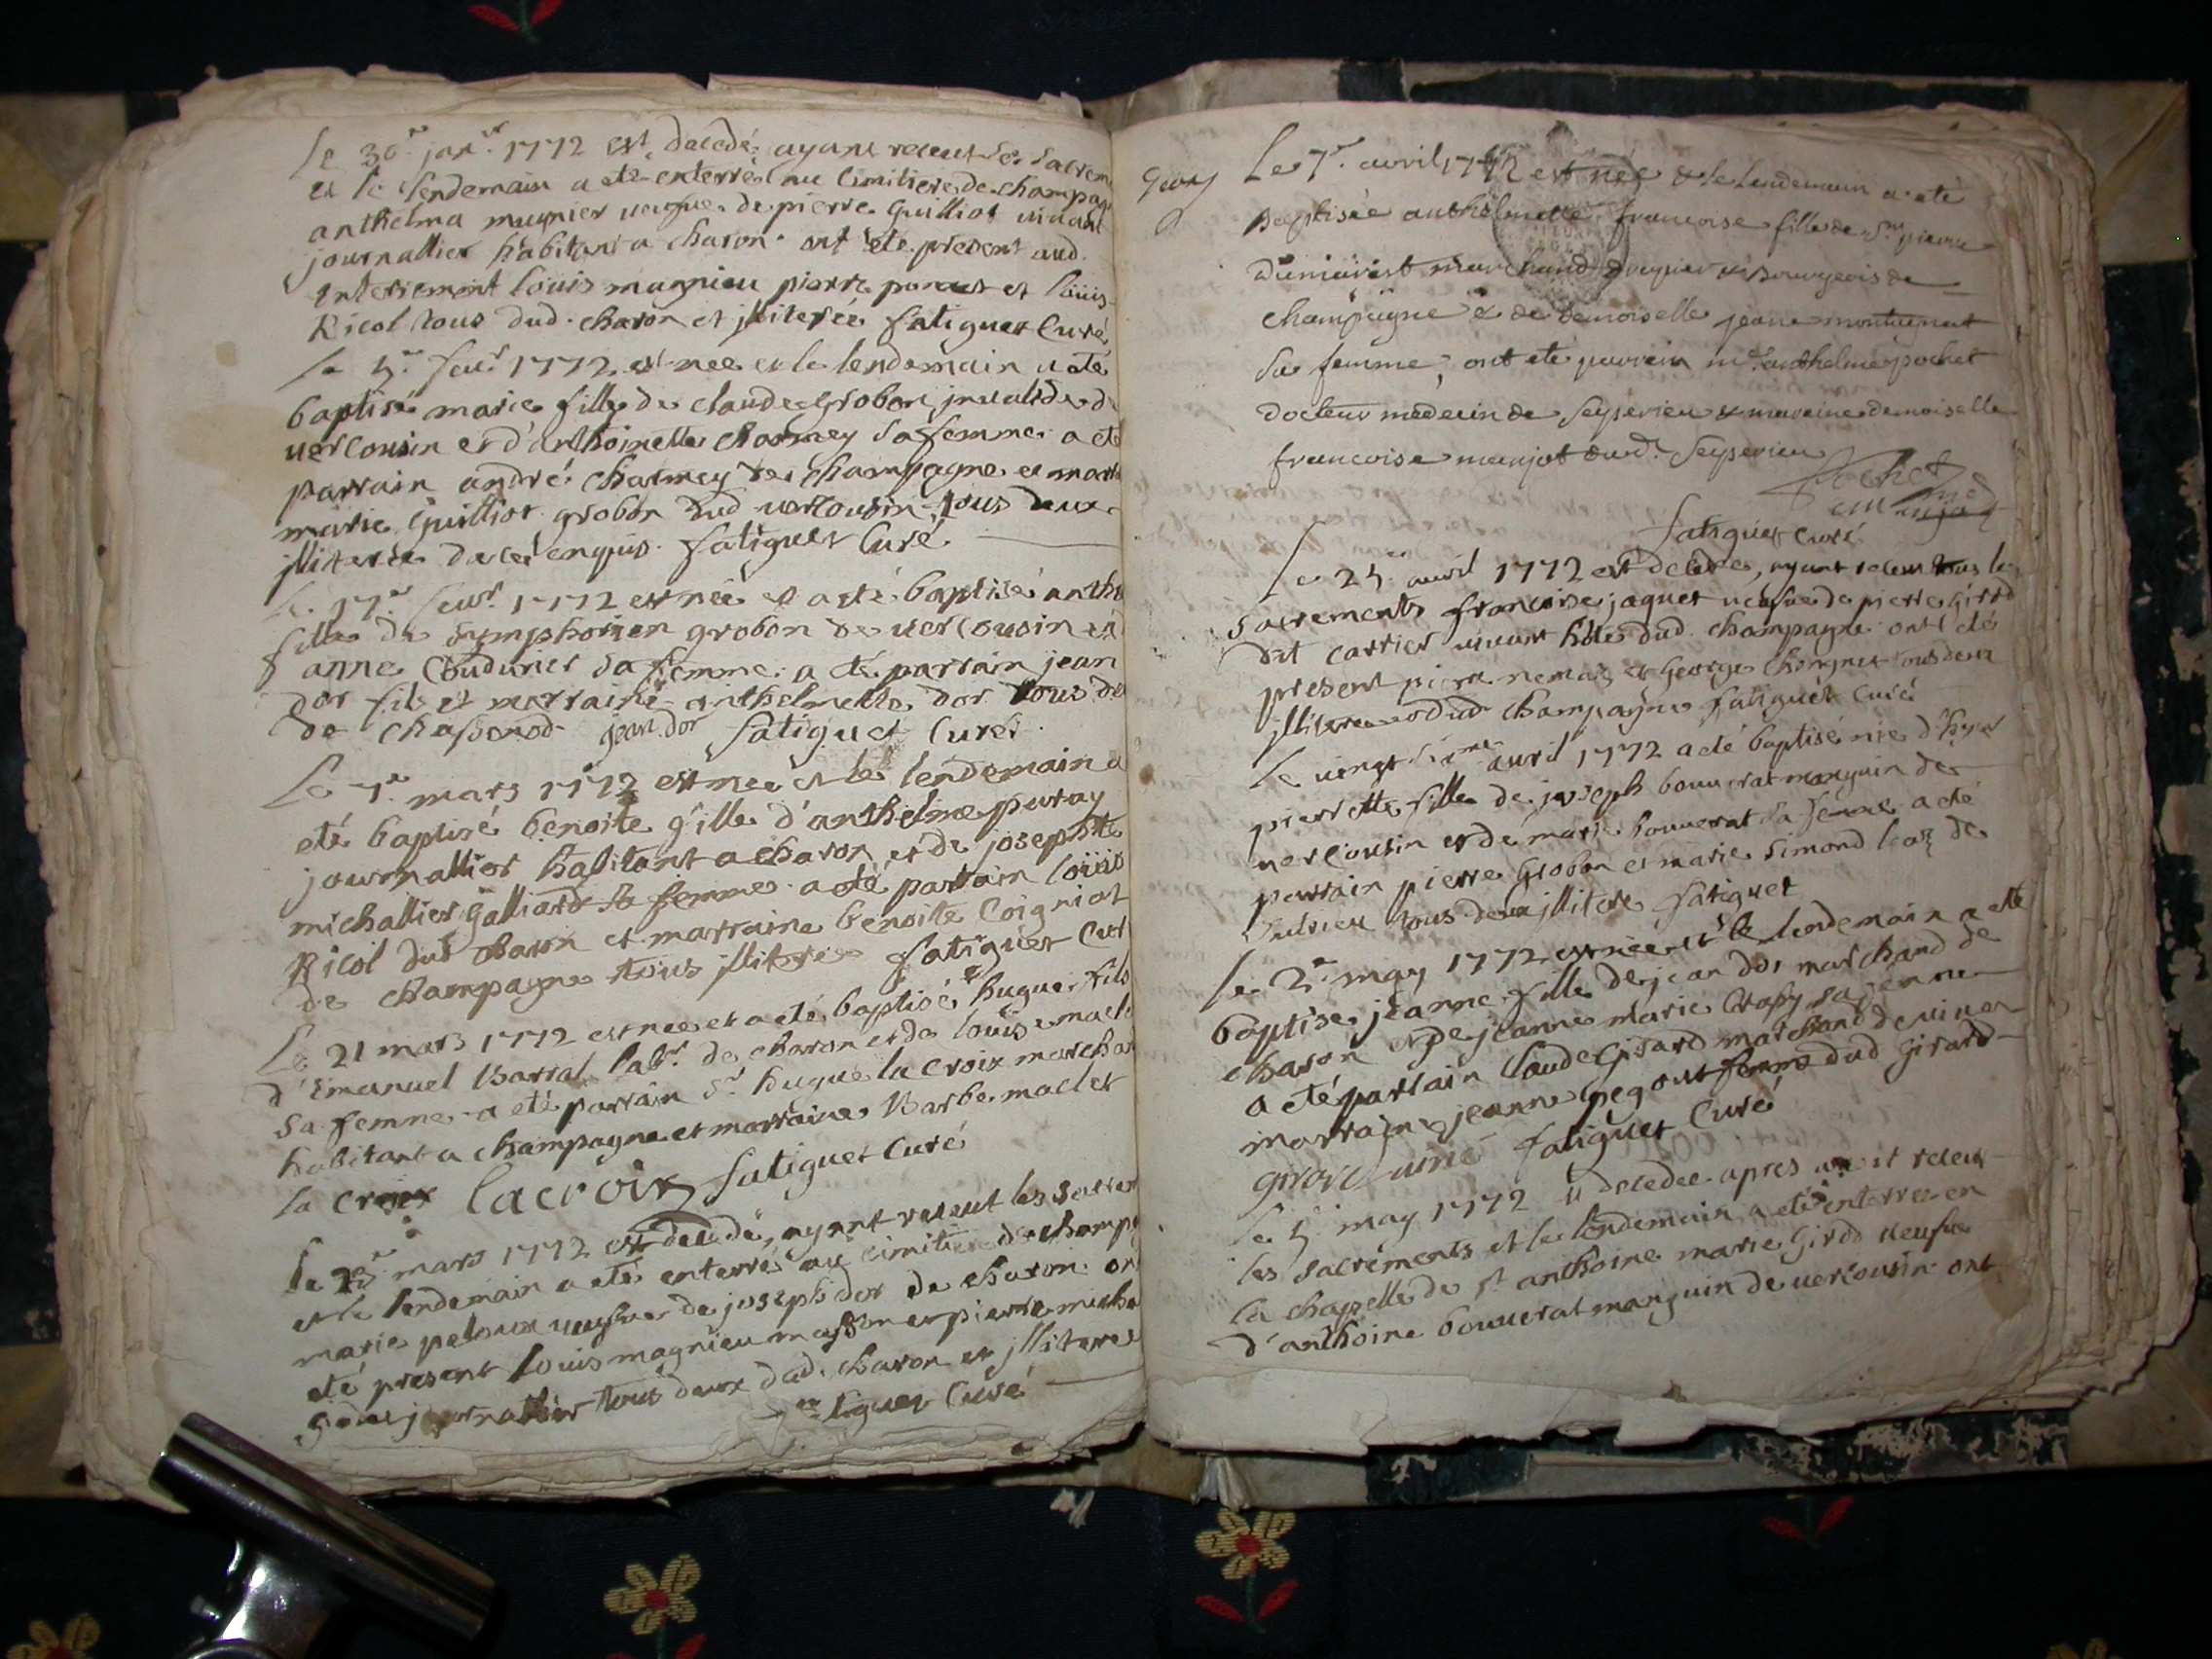 Le 30e janr. 1772 est decedé ayant receut les sacrem
et le lendemain a eté enterré au cimitiere de champag
anthelma meunier veufve de pierre Guilliot vivant
journallier habitant a charon ont eté present aud.
enteriement louis magnieu pierre et louis
Ricol tous dud. charon et jlliterée fatiguet Curé
le 5e feur. 1772 est nee et le lendemain a eté
baptisé marie fille de claude Grobon jnvalide de
vercousin et d'anthoinette charmey sa femme a eté
parrain andré charmey de champagne et marr
marie Guilliot grobon dud vercousin tous deux
jlliterée de ce enquis. fatiguet Curé
le 17e feur. 1772 est née et a eté baptisé anth
fille de symphorien grobon de vercousin et d
anne Coudurier sa femme a eté parrain jean
dor fils et marraine anthelmette dor tous de
de chassenod jean dor fatiguet Curé
Le 7e mars 1772 est née et le lendemain a
eté baptisé benoite fille d'anthelme puray
journallier habitant a charon et de josephte
michallier Galliard sa femme a eté parrain louis
Ricol dud charon et marraine benoite Coigniat
de champagne tous jlliterés fatiguet Curé
Le 21 mars 1772 est nee et a eté baptisé hugue fils
d'Emanuel Barral labr. de charon et de louise macle
sa femme a eté parrain Sr. hugue la croix marchan
habitant a champagne et marraine Barbe maclet
la croix lacroix fatiguet Curé
le mars 1772 est decedé, ayant receut les sacrem
et le lendemain a eté enterré au cimitiere de champ
marie peloux veufve de joseph dor de charon on
eté present louis magnieu masson et pierre micha
journallier tous deux dud. charon et jlliteree
fatiguet Curé
Le 7e. avril 1772 est née & le lendemain a eté
Baptisée anthelmette francoise fille de Sr. pierre
marchand & Bourgeois de
champagne & de demoiselle jeane
sa femme, ont eté parrein mr. anthelme pochet
docteur medecin de Seyserieu & maraine demoiselle
francoise manjot dud. Seyserieu
Pochet
fatiguet curé
Le 25e avril 1772 est decedée, ayant receut tous les
sacrements francoise jaquet veufve de pierre Girod
dit carrier vivant hôte dud. champagne ont eté
present pierre nemoz et George charnet tous deux
jlliterees dud champagne fatiguet Curé
le vingt sixme avril 1772 a eté baptisé née d'hyer
pierrette fille de joseph bouverat manguin de
vercousin et de marie bouverat sa femme a eté
parrain pierre Grobon et marie simond de
sutrieu tous deux jlliteré fatiguet
le 2e may 1772 est née et le lendemain a eté
baptise jeanne fille de jean dor marchand de
charon et de jeanne marie Crassy sa femme
a eté parrain Claude Girard marchand de
marraine jeanne pegout femme dud Girard
fatiguet Curé
le 5e may 1772 decedee apres avoir receut
les sacrements et le lendemain a eté enterree en
la chapelle de st. anthoine marie Girod veufve
d'anthoine bouverat manguin de vercousin ont